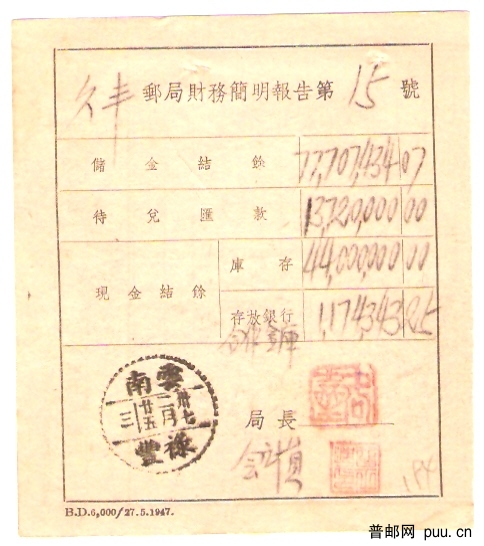 久丰 郵局財務簡明報告第 15 號
儲金結餘 77,707,434 07
待兌匯款 13,720,000 00
現金結餘 庫存 44,000,000 00
存放銀行 1,174,343 85
合作金庫
雲南
卅七
二月
廿五
三
祿豐
局長
会計員
B.D.6,000/27.5.1947.
普邮网 puu.cn